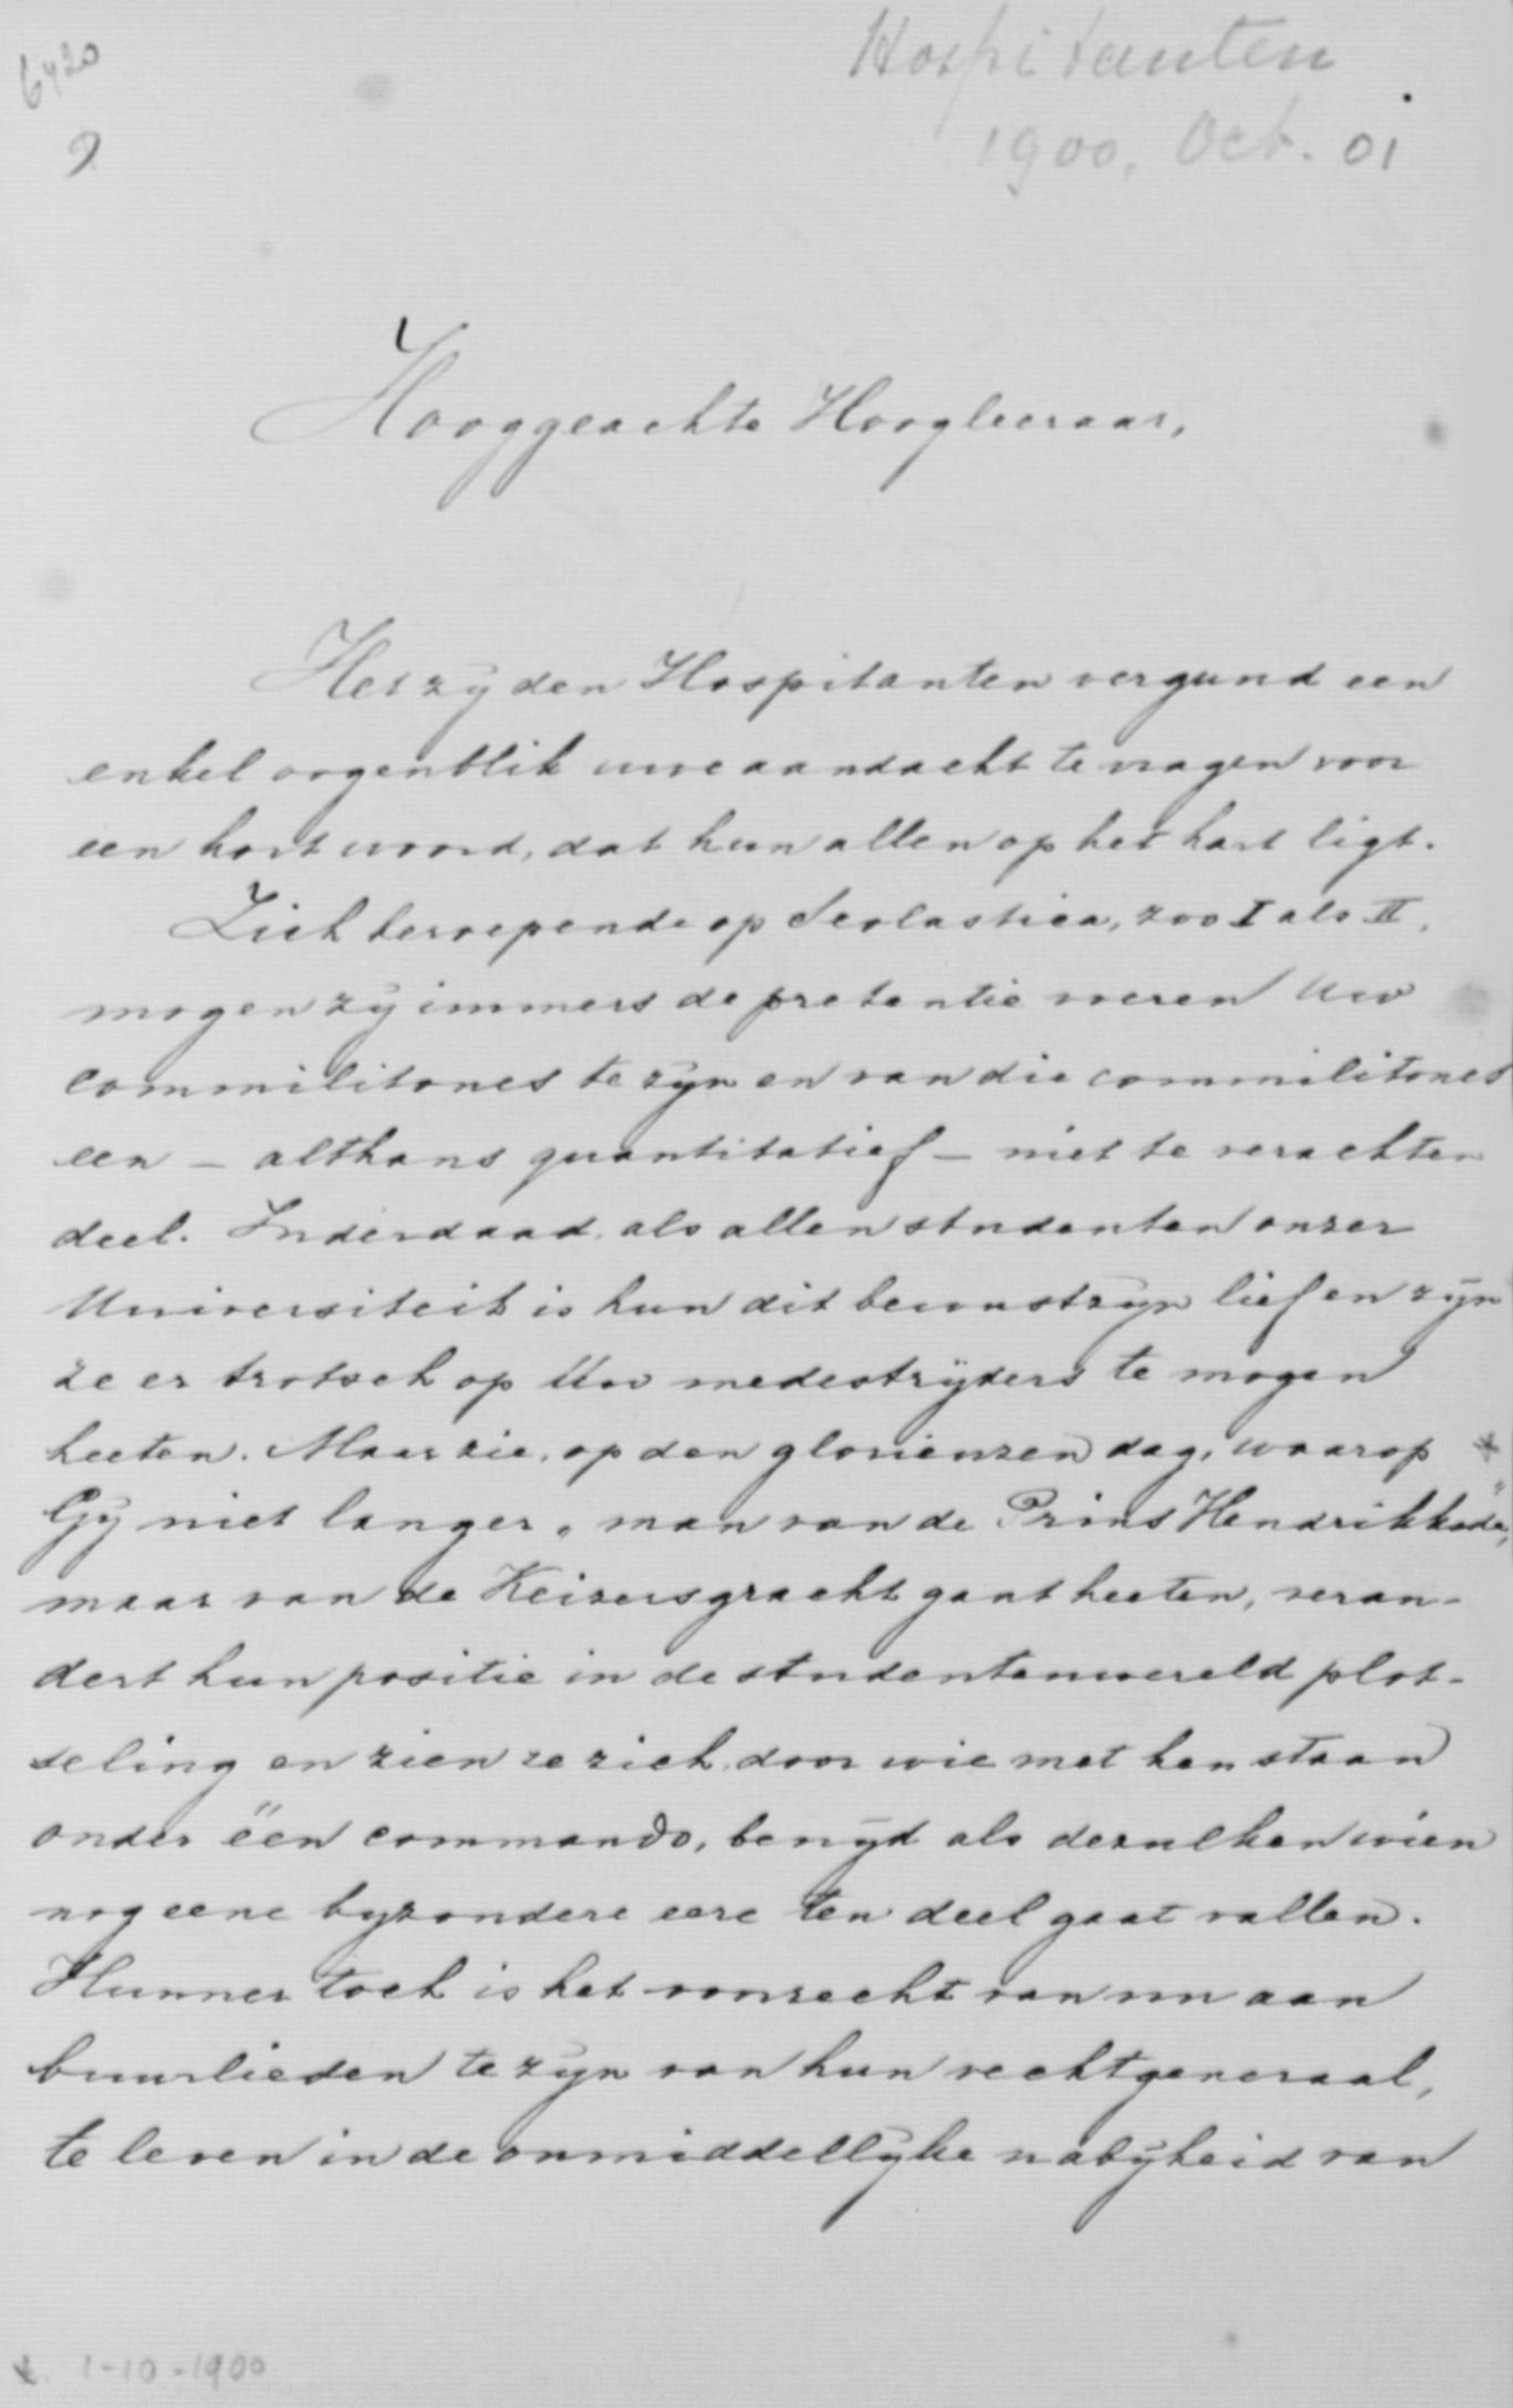 6420
Hospitanten
1900, Oct. 01
Hooggeachte Hoogleeraar,
Het zij den Hospitanten vergund een
enkel oogenblik uwe aandacht te vragen voor
een kort woord, dat hun allen op het hart ligt.
Zich beroepende op Scolastica, zoo I als II,
mogen zij immers de pretentie voeren Uw
commilitones te zijn en van die commilitones
een – althans quantitatief – niet te verachten
deel. Inderdaad, als allen studenten onzer
Universiteit is hun dit bewustzijn lief en zijn
ze er trotsch op Uw medestrijders te mogen
heeten. Maar zie, op den glorieuzen dag, waarop *
Gij niet langer „man van de Prins Hendrikkade",
maar van de Keizersgracht gaat heeten, veran-
dert hun positie in de studentenwereld plot-
seling en zien ze zich, door wie met hen staan
onder één commando, benijd als dezulken wien
nog eene byzondere eere ten deel gaat vallen.
Hunner toch is het voorrecht van nu aan
buurlieden te zijn van hun veldtgeneraal,
te leven in de onmiddellijke nabijheid van
*. 1-10-1900